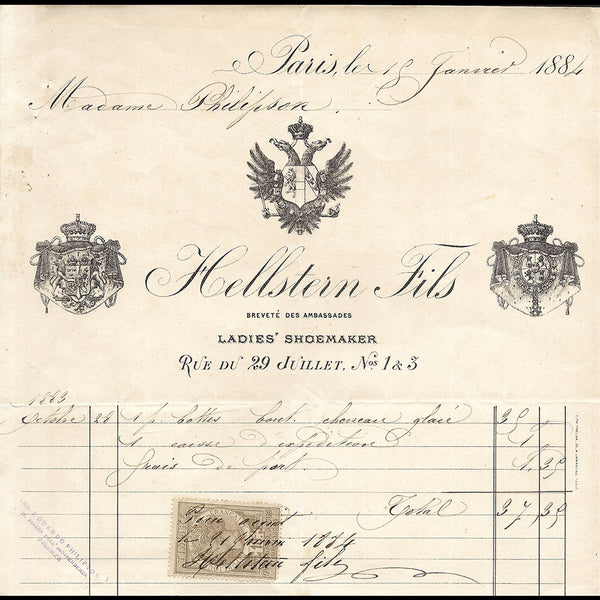 Paris, le 15 Janvier 1884
Madame Philipson.
Hellstern Fils
BREVETÉ DES AMBASSADES
LADIES' SHOEMAKER
RUE DU 29 JUILLET, Nos 1 & 3
1883
Octobre 26 1 p. bottes bout. chevreau glacé 35
1 caisse d'expédition 1
frais de port. 1,35
Total 37,35
Pour acquit
le Janvier 1884
Hellstern fils
EDUARDO PHILIPSON